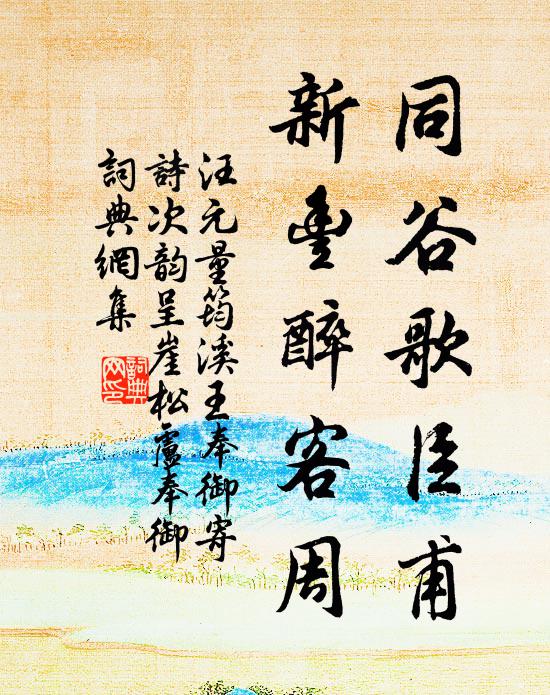 同谷歌臣甫
新豐醉客周
汪元量筠溪王奉御寄
詩次韵呈崖松盧奉御
詞典網集
詞典
网印